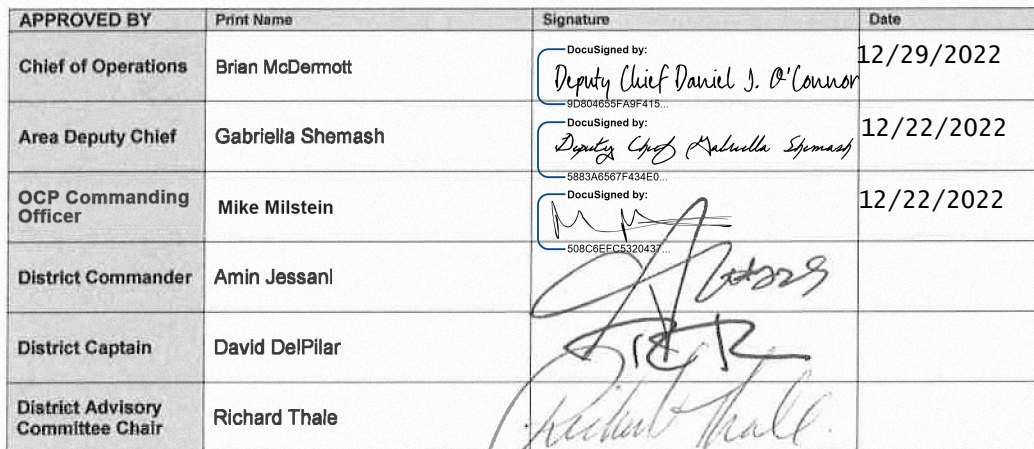 APPROVED BY Print Name Signature Date
Chief of Operations Brian McDermott DocuSigned by: Deputy Chief Daniel J. O'Connor 9D804655FA9F415... 12/29/2022
Area Deputy Chief Gabriella Shemash DocuSigned by: Deputy Chief Gabriella Shemash 5883A6567F434E0... 12/22/2022
OCP Commanding
Officer Mike Milstein DocuSigned by: 508C6EFC5320437... 12/22/2022
District Commander Amin Jessani
District Captain David DelPilar
District Advisory
Committee Chair Richard Thale Richard Thale